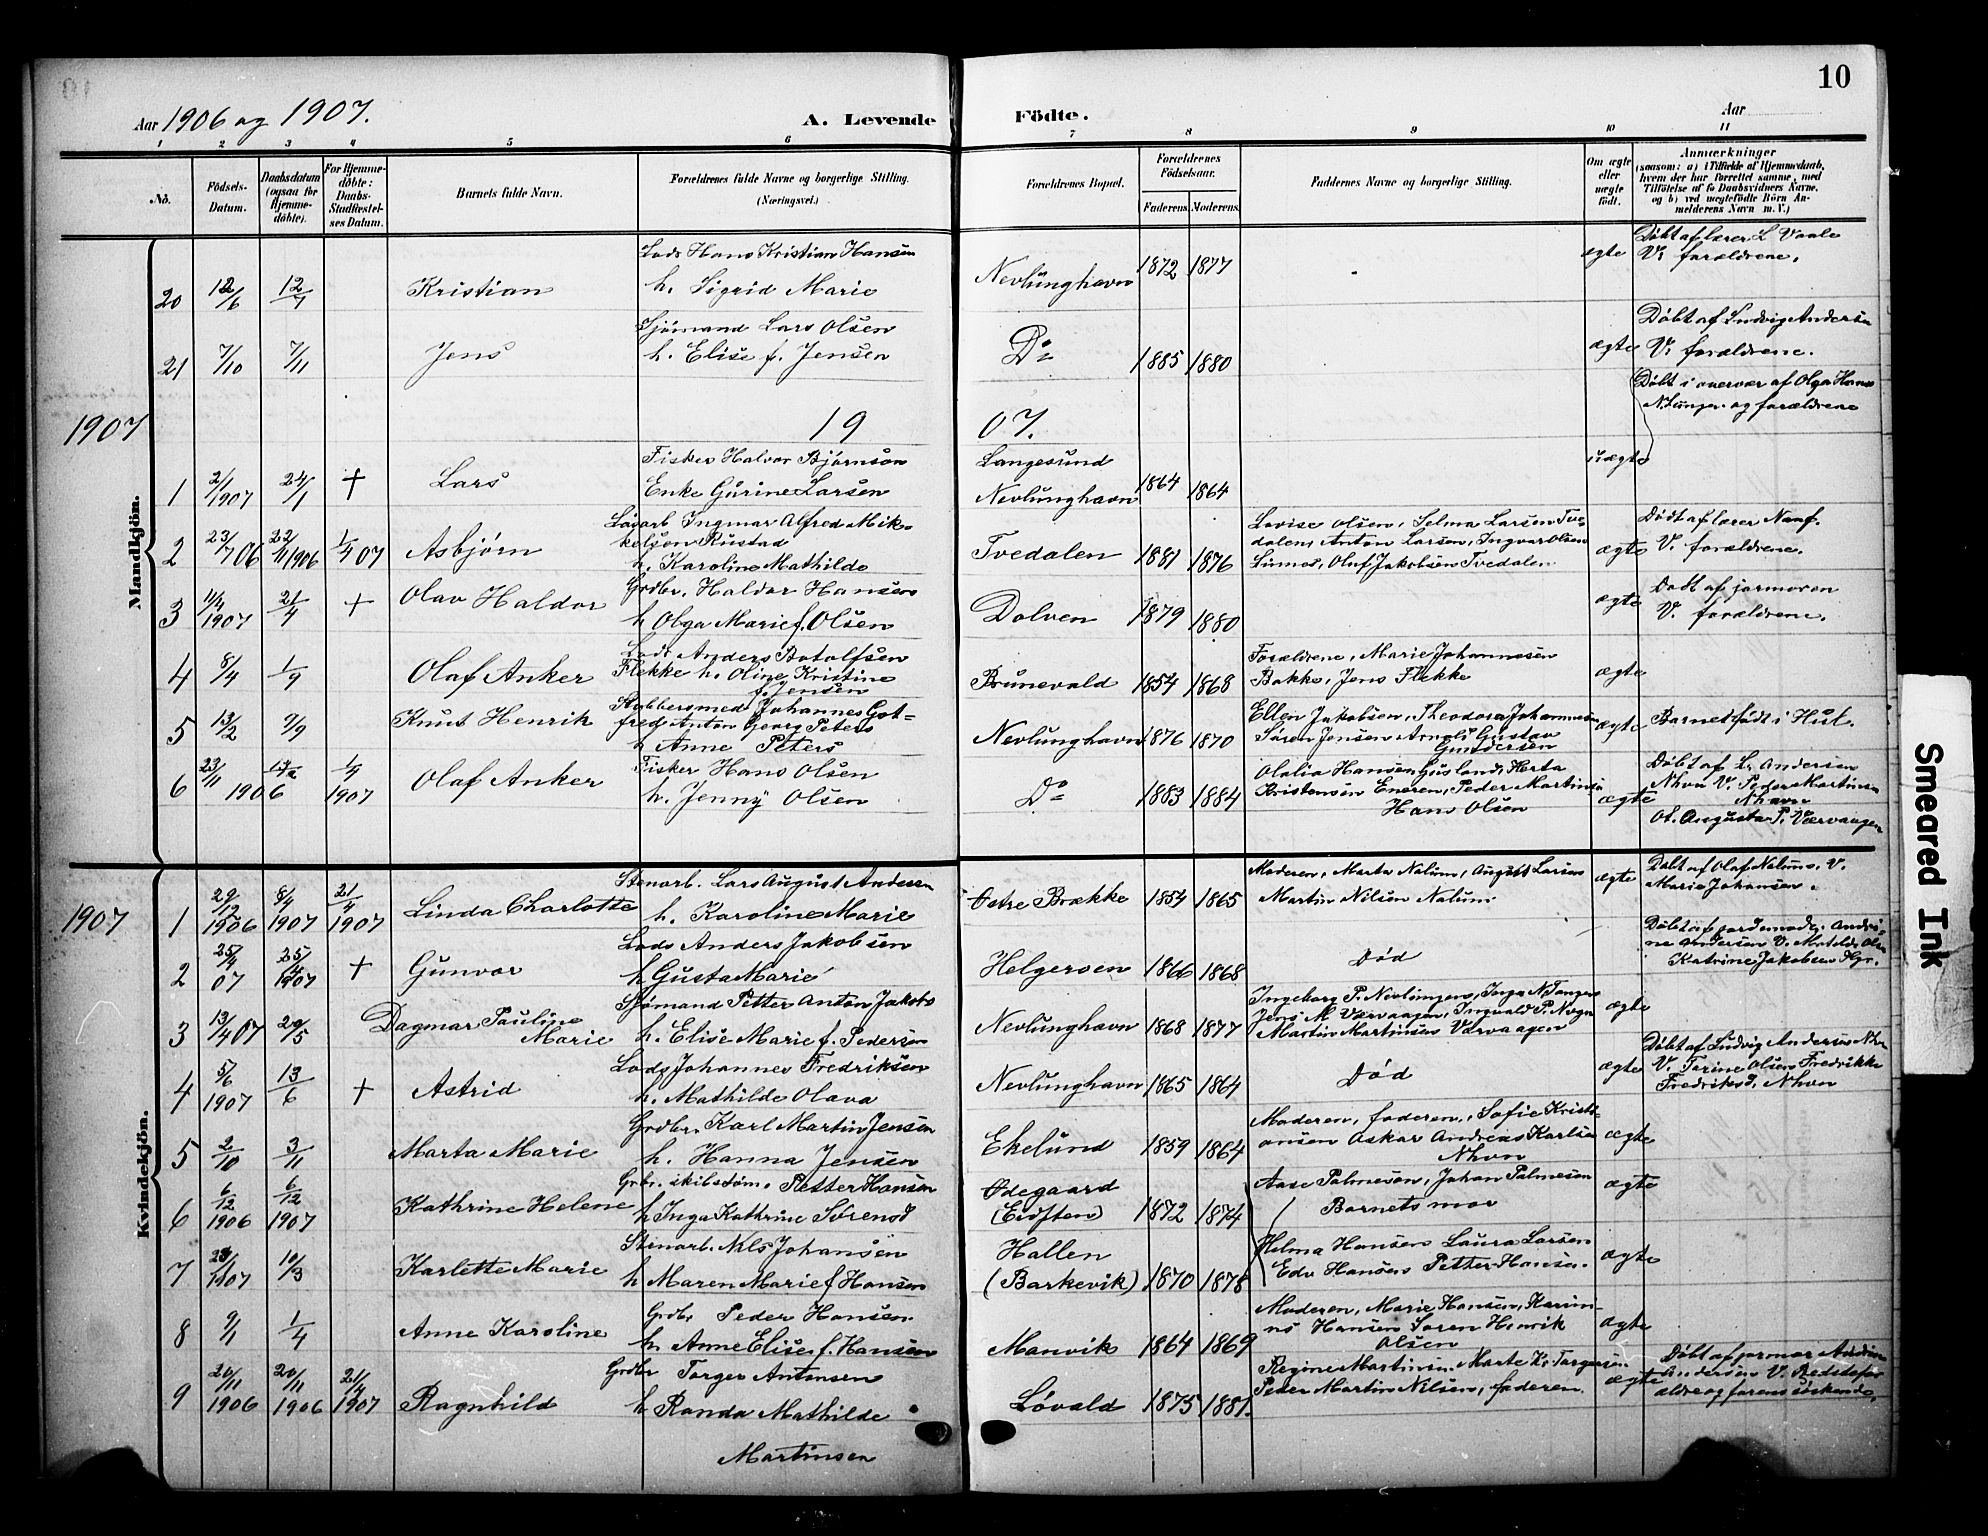 10
Aar 1906 og 1907.
A. Levende Födte.
Aar
1 2 3 4 5 6 7 8 9 10 11
No.
Födsels-Datum.
Daabsdatum (ogsaa for Hjemme-döbte).
For Hjemme-döbte: Daabs-Stadfæstel-ses Datum.
Barnets fulde Navn.
Forældrenes fulde Navne og borgerlige Stilling. (Næringsvei.)
Forældrenes Bopæl.
Forældrenes Födselsaar.
Faderens. Moderens.
Faddernes Navne og borgerlige Stilling.
Om ægte eller uægte födt.
Anmærkninger
(saasom: a) i Tilfælde af Hjemmedaab, hvem der har forrettet samme, med Tilföielse af to Daabsvidners Navne, og b) ved uægtefödte Börn An-melderens Navn m. V.)
Mandkjön.
20 12/6 12/7 Kristian
Lods Hans Kristian Hansen
h. Sigrid Marie
Nevlunghavn 1872 1877 ægte
Døbt af lærer L. Vaale
V. forældrene.
21 7/10 7/11 Jens
Sjømand Lars Olsen
h. Elise f. Jensen
Do 1885 1880 ægte
Døbt af Ludvig Andersen
V. forældrene.
1907
19 07.
1 2/1 1907 24/1 + Lars
Fisker Halvor Bjørnson
Enke Gurine Larsen
Langesund
Nevlunghavn 1864 1864 uægte
Døbt i overvær af Olga Hans
og forældrene
2 23/7 06 22/11 1906 1/4 07 Asbjørn
Løsarb Ingmar Alfred Mik-
kelson Rustad
h. Karoline Mathilde
Tvedalen 1881 1876
Lovise Olsen, Selma Larsen Tve-
dalen, Anton Larsen, Ingvar Olsen
Olaf Jakobsen Tvedalen
ægte
Døbt af lærer
V. forældrene.
3 11/4 1907 21/4 + Olav Haldor
Grdbr. Haldor Hansen
h Olga Marie f. Olsen
Dolven 1879 1880 ægte
Døbt af jormoren
V. forældrene.
4 8/4 1/9 Olaf Anker
Lods Anders Botolfsen
Flekke h. Oline Kristine
f. Jensen
Brunevald 1854 1868
Forældrene, Marie Johannesen
Bakke, Jens Flekke
ægte
5 13/2 9/9 Knut Henrik
Johannes Got=
fred Anton Georg Peters
h Anne Peters
Nevlunghavn 1876 1870
Ellen Jakobsen, Theodora Johannesen
Søren Jensen Arnold Gustav
Gundersen
ægte
Barnet født i Hust.
6 23/11 1906 1/4 1907 Olaf Anker
Fisker Hans Olsen
h. Jenny Olsen
Do 1883 1884
Olalia Hansen Gusland, Herta
Kristensen Eneren, Peder Martinsen
Hans Olsen
ægte
Døbt af L. Andersen
Nhvn V. Peder Martinsen
Nhavn
Augusta P. Værvaagen
Kvindekjön.
1907
1 29/12 1906 8/4 1907 21/4 1907 Linda Charlotte
Stenarb. Lars August Andersen
h. Karoline Marie
Østre Brække 1854 1865
Moderen, Marta Nalum, August Larsen
Martin Nilsen Nalum
ægte
Døbt af Olaf Nalum. V.
Marie Johansen.
2 25/4 07 25/4 1907 + Gunvor
Lods Anders Jakobsen
h Gusta Marie
Helgeroen 1866 1868
Død
Døbt af jordemod. Andri-
ne Andersen V. Matilde Olsen
Katrine Jakobsen Hgr.
3 13/4 07 29/5 Dagmar Pauline
Marie
Sjømand Petter Anton Jakobs
h. Elise Marie f. Pedersen
Nevlunghavn 1868 1877
Ingeborg P. Nevlungen, Inga N. Tangen
Jens M Værvaagen, Ingvald P. Nvgn
Martin Martinsen Værvaagen
ægte
4 5/6 1907 13/6 + Astrid
Lods Johannes Fredriksen
h. Mathilde Olava
Nevlunghavn 1865 1864
Død
ægte
Døbt af Ludvig Andersen Nhvn
V. Torine Olsen Fredrikke
Fredriksd. Nhvn
5 2/10 3/11 Marta Marie
Grdbr. Karl Martin Jensen
h. Hanna Jensen
Ekelund 1859 1864
Moderen, faderen, Sofie Kristi-
ansen Oskar Andreas Karlsen
Nhvn
ægte
6 6/12 1906 6/12 1907 Kathrine Helene
Grbr. skibstøm. Petter Hansen
h Inga Kathrine Sørensd
Ødegaard
(Eidften) 1872 1874
Aase Palmesen, Johan Palmesen
Barnets mor
ægte
7 23/1 1907 10/3 Karlette Marie
Stenarb. Nils Johansen
h Maren Marie f Hansen
Hallen
(Barkevik) 1870 1878
Hilma Hansen Laura Larsen
Edv Hansen Petter Hansen.
ægte
8 9/1 1/4 Anne Karoline
Grdbr Peder Hansen
h Anne Elise f. Hansen
Manvik 1864 1869
Moderen, Marie Hansen, Karini-
us Hansen Søren Henrik
Olsen
ægte
9 20/11 1906 20/11 1906 21/4 1907 Ragnhild
Grdbr Torger Antonsen
h Randa Mathilde
Martinsen
Løvald 1875 1881.
Regine Martinsen. Marte K. Torgersen
Peder Martin Nilsen, faderen.
ægte
Døbt af jormor Andrine
Andersen V. Bedstefor
ældre og farens søskende.
Smeared Ink